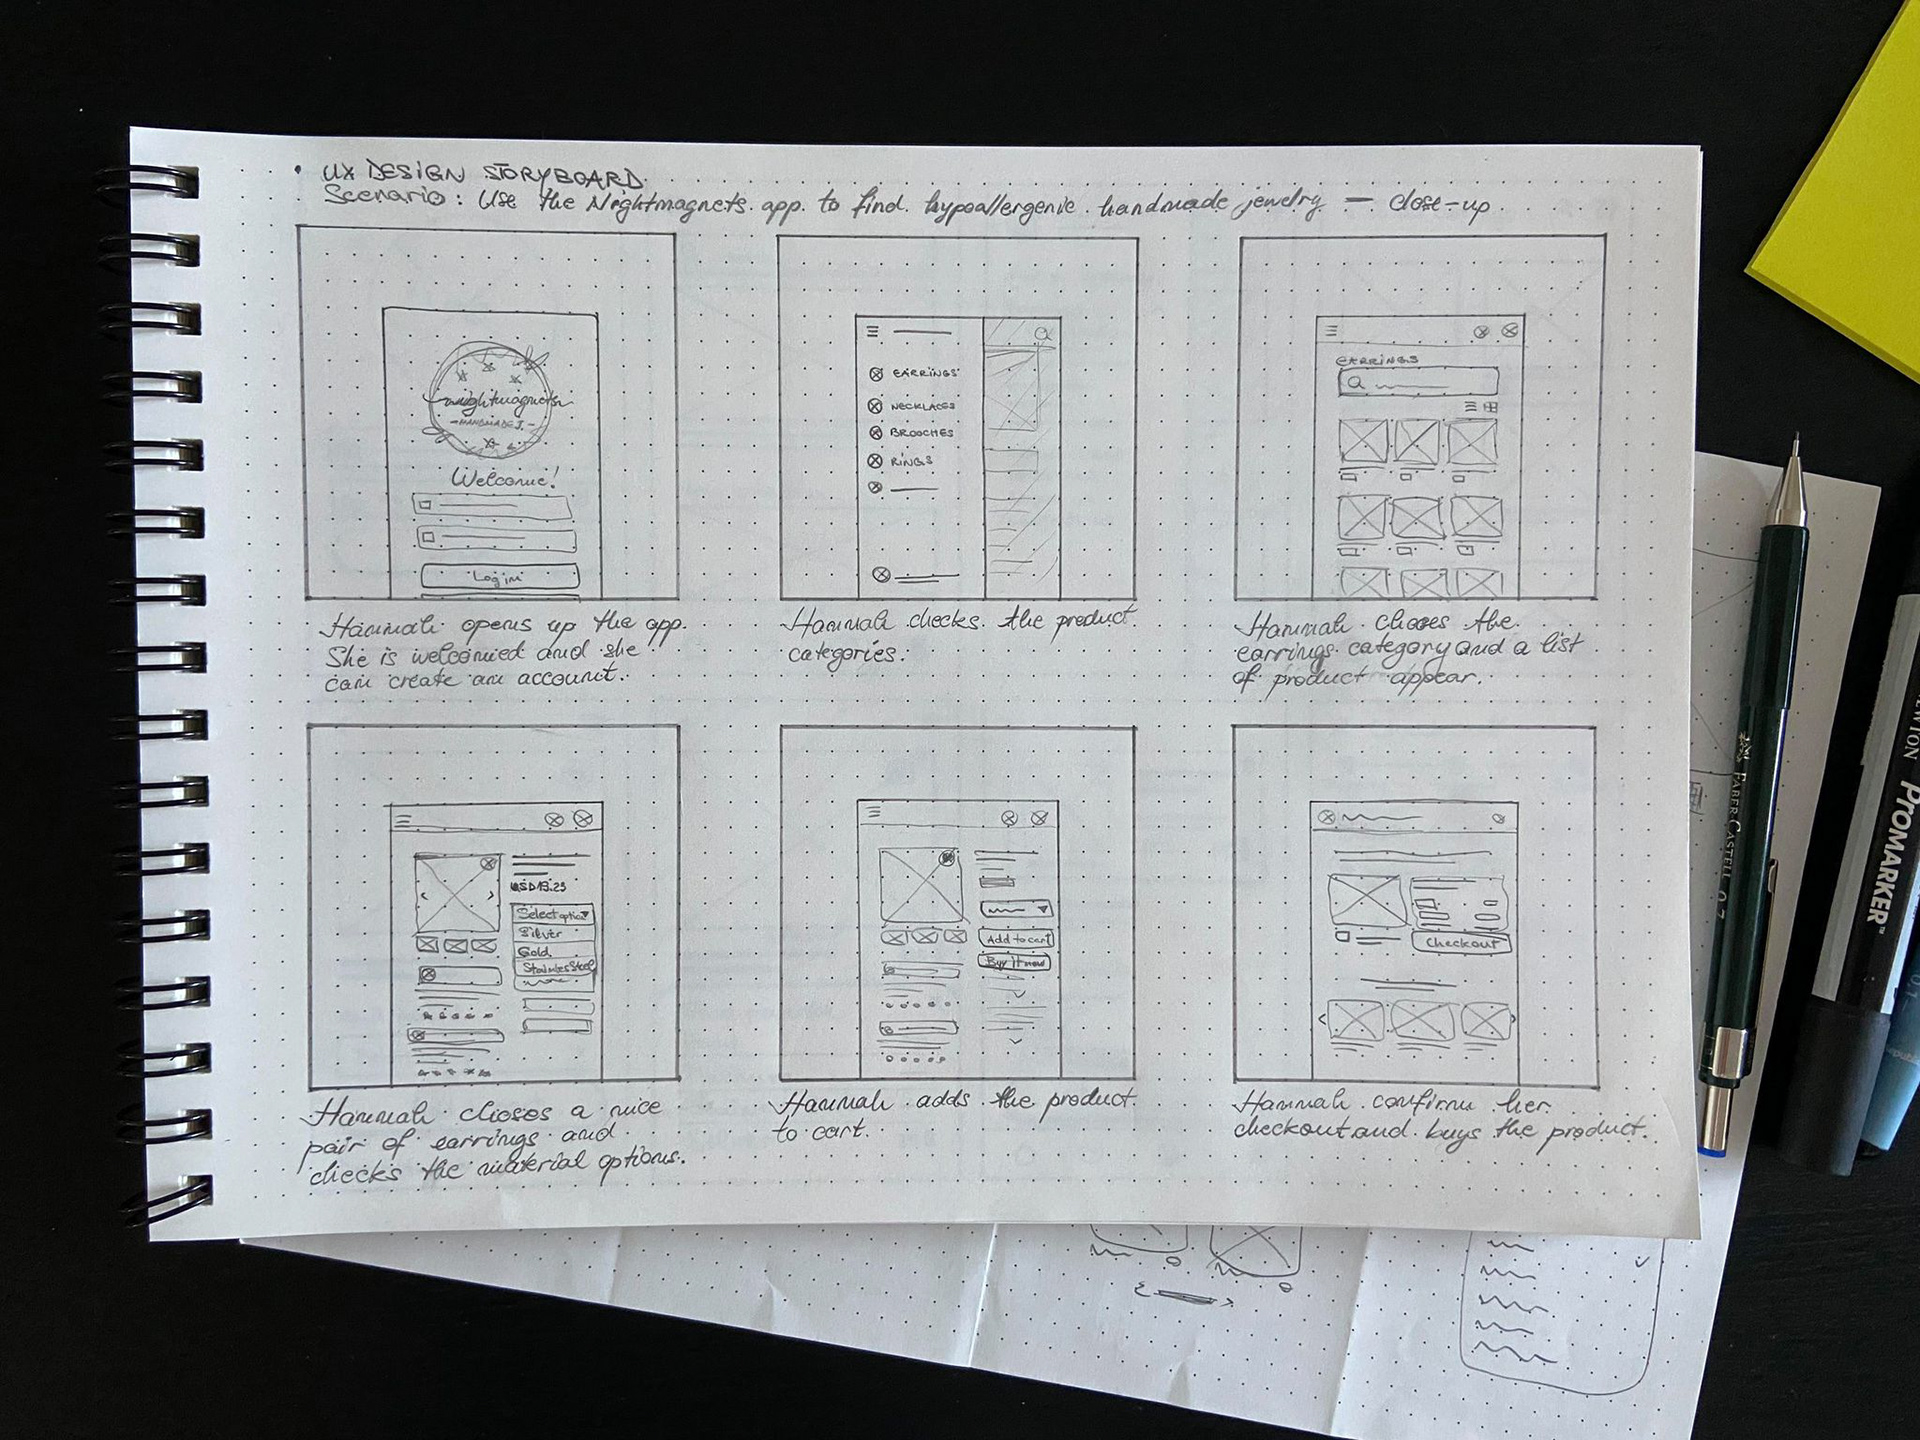 • UX DESIGN STORYBOARD
Scenario: Use the Nightmagnets app to find hypoallergenic handmade jewelry — close-up
nightmagnets
-HANDMADE J.-
Welcome!
Log in
Hannah opens up the app.
She is welcomed and she
can create an account.
EARRINGS
NECKLACES
BROOCHES
RINGS
Hannah checks the product
categories.
EARRINGS
Hannah choses the
earrings category and a list
of product appear.
USD 13.25
Select option
Silver
Gold
Stainless Steel
Hannah choses a nice
pair of earrings and
checks the material options.
Add to cart
Buy it now
Hannah adds the product
to cart.
Checkout
Hannah confirms her
checkout and buys the product.
FABER-CASTELL 0.7
PROMARKER™